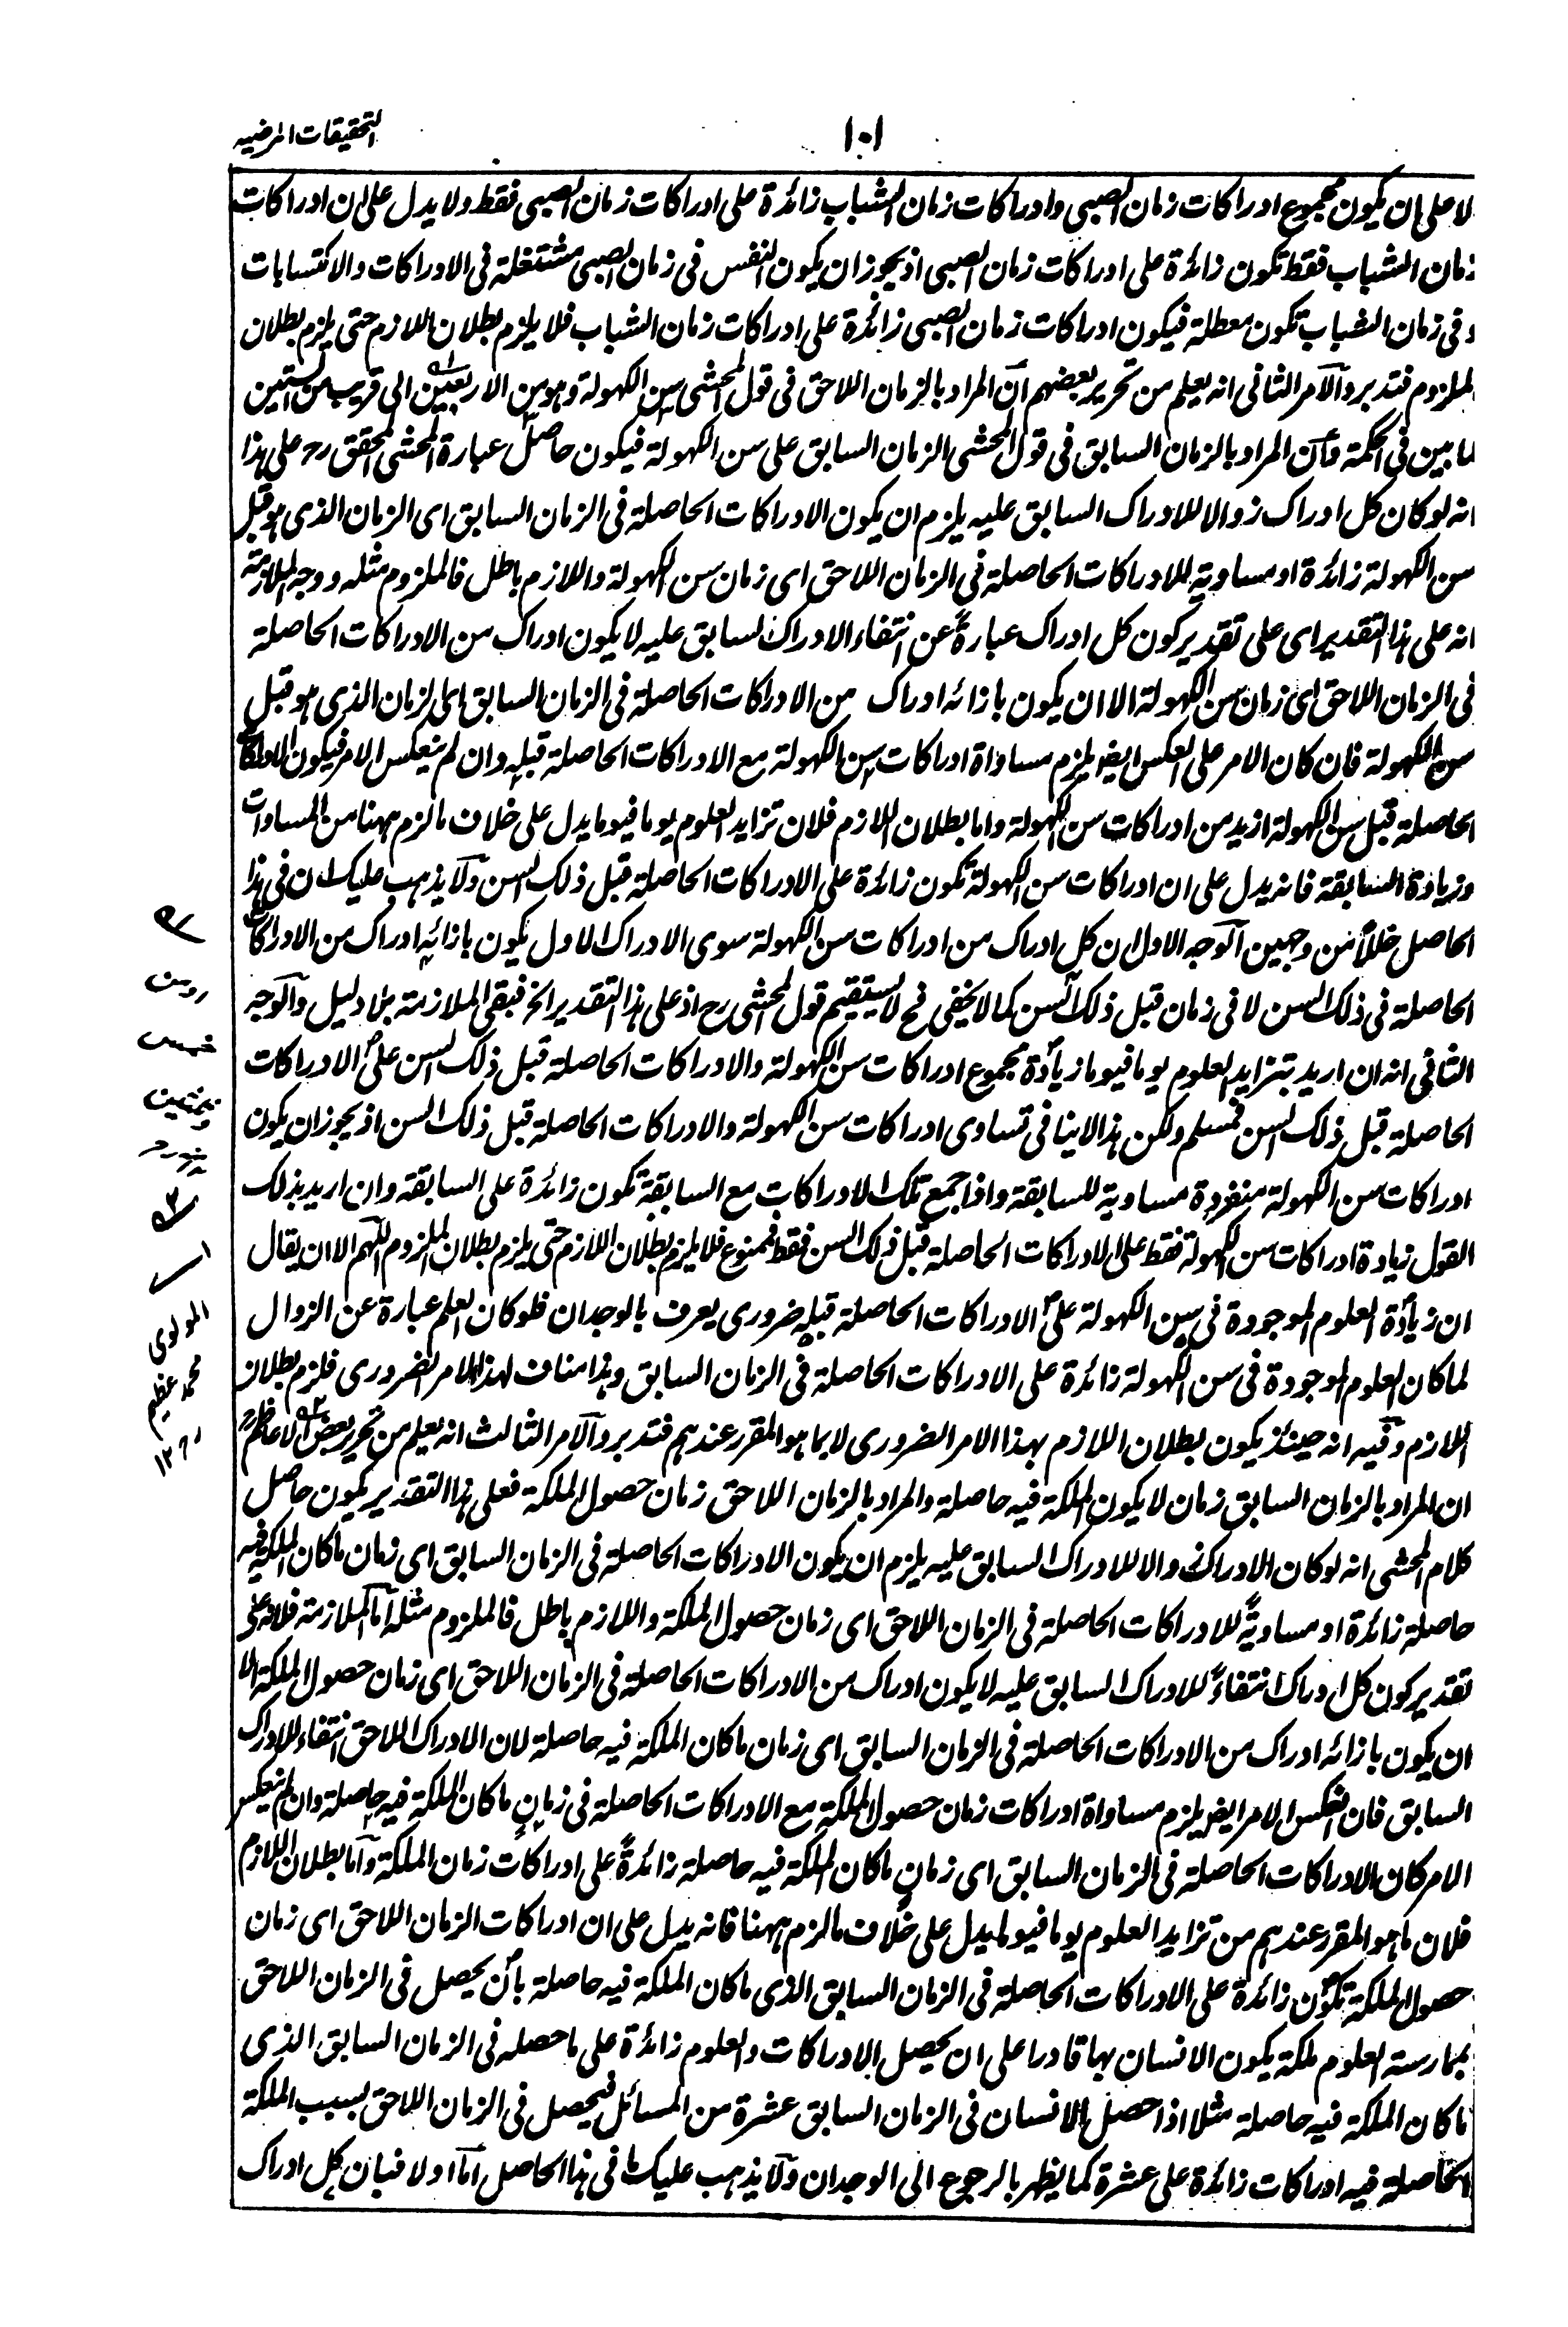 التحقيقات المرضيه
١٠١
لا على ان يكون مجموع ادراكات زمان الصبى وادراكات زمان الشباب زائدة على ادراكات زمان الصبى فقط ولا يدل على ان ادراكات
زمان الشباب فقط تكون زائدة على ادراكات زمان الصبى اذ يجوز ان يكون النفس فى زمان الصبى مشتغلة فى الادراكات والاكتسابات
وفى زمان الشباب تكون معطلة فيكون ادراكات زمان الصبى زائدة على ادراكات زمان الشباب فلا يلزم بطلان اللازم حتى يلزم بطلان
الملزوم فتدبر والامر الثانى انه يعلم من تحرير بعضهم ان المراد بالزمان اللاحق فى قول المحشى سن الكهولة وهو من الاربعين الى قريب من الستين
لما بين فى الحكمة وان المراد بالزمان السابق فى قول المحشى الزمان السابق على سن الكهولة فيكون حاصل عبارة المحشى المحقق رح على هذا
انه لو كان كل ادراك زوالا للادراك السابق عليه يلزم ان يكون الادراكات الحاصلة فى الزمان السابق اى الزمان الذى هو قبل
سن الكهولة زائدة او مساوية للادراكات الحاصلة فى الزمان اللاحق اى زمان سن الكهولة واللازم باطل فالملزوم مثله ووجه الملازمة
انه على هذا التقدير اى على تقدير كون كل ادراك عبارة عن انتفاء الادراك السابق عليه لا يكون ادراك من الادراكات الحاصلة
فى الزمان اللاحق اى زمان سن الكهولة الا ان يكون بازائه ادراك من الادراكات الحاصلة فى الزمان السابق اى الزمان الذى هو قبل
سن الكهولة فان كان الامر على العكس ايضا يلزم مساواة ادراكات سن الكهولة مع الادراكات الحاصلة قبله وان لم ينعكس الامر فيكون الادراكات
الحاصلة قبل سن الكهولة ازيد من ادراكات سن الكهولة واما بطلان اللازم فلان تزايد العلوم يوما فيوما يدل على خلاف ما لزم ههنا من المساوات
وزيادة السابقة فانه يدل على ان ادراكات سن الكهولة تكون زائدة على الادراكات الحاصلة قبل ذلك السن ولا يذهب عليك ان فى هذا
الحاصل خللا من وجهين الوجه الاول ان كل ادراك من ادراكات سن الكهولة سوى الادراك الاول يكون بازائه ادراك من الادراكات
الحاصلة فى ذلك السن لا فى زمان قبل ذلك السن كما لا يخفى فح لا يستقيم قول المحشى رح اذ على هذا التقدير الخ فبقى الملازمة بلا دليل والوجه
الثانى انه ان اريد بتزايد العلوم يوما فيوما زيادة مجموع ادراكات سن الكهولة والادراكات الحاصلة قبل ذلك السن على الادراكات
الحاصلة قبل ذلك السن فمسلم ولكن هذا لا ينافى تساوى ادراكات سن الكهولة والادراكات الحاصلة قبل ذلك السن اذ يجوز ان يكون
ادراكات سن الكهولة منفردة مساوية للسابقة واذا جمع تلك الادراكات مع السابقة تكون زائدة على السابقة وان اريد بذلك
القول زيادة ادراكات سن الكهولة فقط على الادراكات الحاصلة قبل ذلك السن فقط فممنوع فلا يلزم بطلان اللازم حتى يلزم بطلان الملزوم اللهم الا ان يقال
ان زيادة العلوم الموجودة فى سن الكهولة على الادراكات الحاصلة قبله ضرورى يعرف بالوجدان فلو كان العلم عبارة عن الزوال
لما كان العلوم الموجودة فى سن الكهولة زائدة على الادراكات الحاصلة فى الزمان السابق وهذا مناف لهذا الامر الضرورى فلزم بطلان
اللازم وفيه انه حينئذ يكون بطلان اللازم بهذا الامر الضرورى لا بما هو المقرر عندهم فتدبر والامر الثالث انه يعلم من تحرير بعض الاعاظم
ان المراد بالزمان السابق زمان لا يكون الملكة فيه حاصلة والمراد بالزمان اللاحق زمان حصول الملكة فعلى هذا التقدير يكون حاصل
كلام المحشى انه لو كان الادراك زوالا للادراك السابق عليه يلزم ان يكون الادراكات الحاصلة فى الزمان السابق اى زمان ما كان الملكة فيه
حاصلة زائدة او مساوية للادراكات الحاصلة فى الزمان اللاحق اى زمان حصول الملكة واللازم باطل فالملزوم مثله اما الملازمة فلانه على
تقدير كون كل ادراك انتفاء للادراك السابق عليه لا يكون ادراك من الادراكات الحاصلة فى الزمان اللاحق اى زمان حصول الملكة الا
ان يكون بازائه ادراك من الادراكات الحاصلة فى الزمان السابق اى زمان ما كان الملكة فيه حاصلة لان الادراك اللاحق انتفاء للادراك
السابق فان انعكس الامر ايضا يلزم مساواة ادراكات زمان حصول الملكة مع الادراكات الحاصلة فى زمان ما كان الملكة فيه حاصلة وان لم ينعكس
الامر كان الادراكات الحاصلة فى الزمان السابق اى زمان ما كان الملكة فيه حاصلة زائدة على ادراكات زمان الملكة واما بطلان اللازم
فلان ما هو المقرر عندهم من تزايد العلوم يوما فيوما يدل على خلاف ما لزم ههنا فانه يدل على ان ادراكات الزمان اللاحق اى زمان
حصول الملكة تكون زائدة على الادراكات الحاصلة فى الزمان السابق الذى ما كان الملكة فيه حاصلة بان يحصل فى الزمان اللاحق
بممارسة العلوم ملكة يكون الانسان بها قادرا على ان يحصل الادراكات والعلوم زائدة على ما حصله فى الزمان السابق الذى
ما كان الملكة فيه حاصلة مثلا اذا حصل الانسان فى الزمان السابق عشرة من المسائل فيحصل فى الزمان اللاحق بسبب الملكة
الحاصلة فيه ادراكات زائدة على عشرة كما يظهر بالرجوع الى الوجدان ولا يذهب عليك ما فى هذا الحاصل اما اولا فبان كل ادراك
المولوى
محمد عظيم